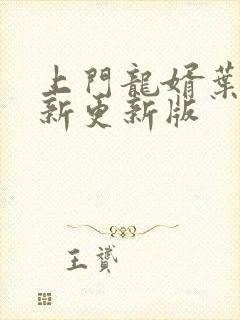 上門龍婿葉
新更新版
王贇